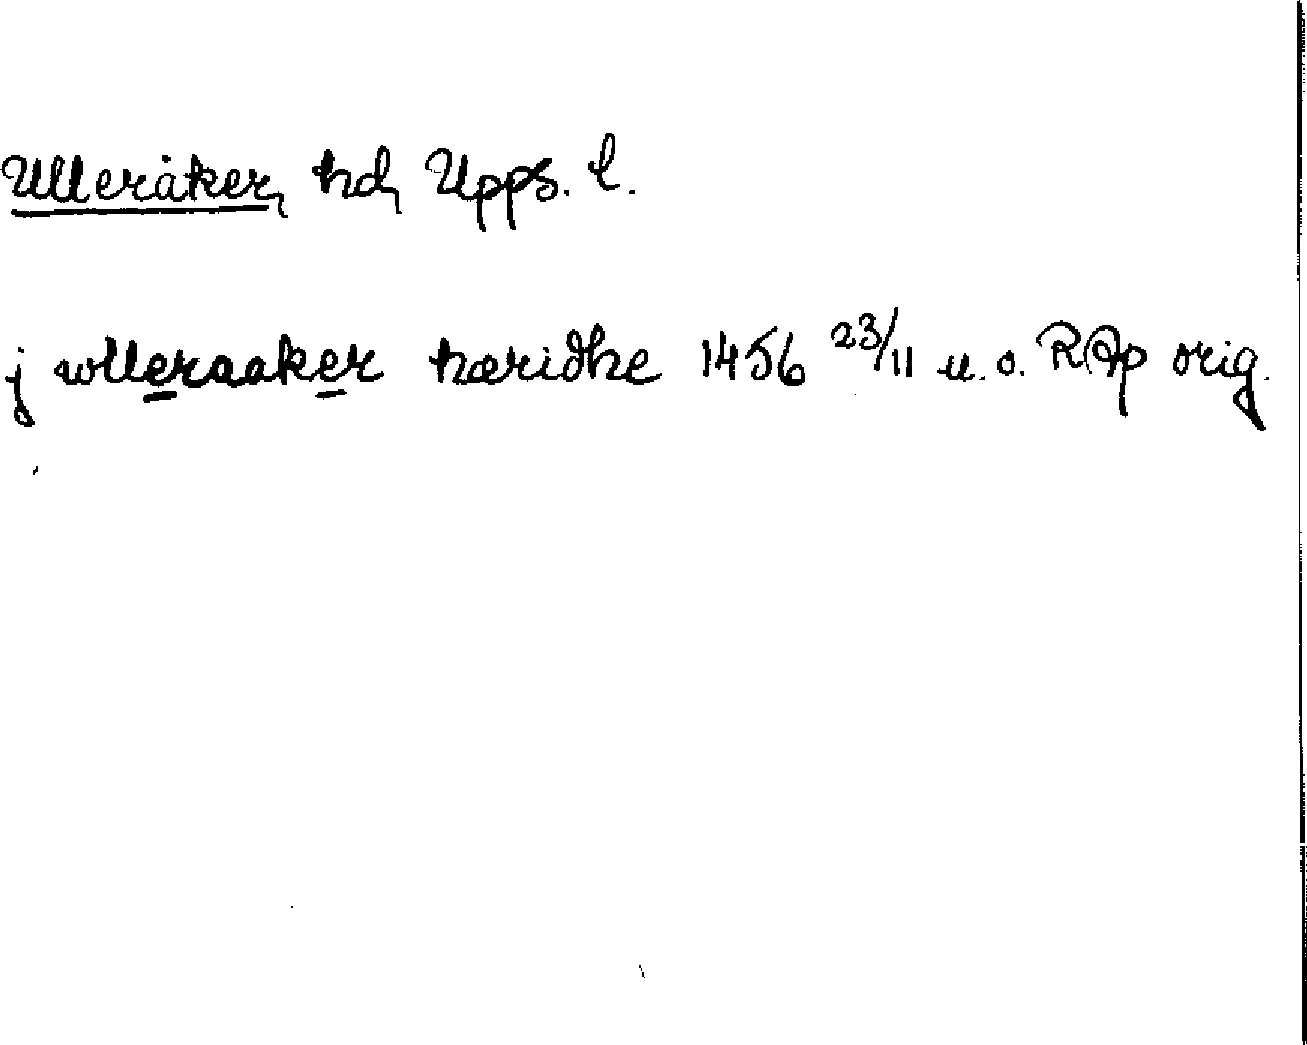 Ulleråker, hd, Upps. l.
j wlleraaker hæridhe 1456 23/11 u. o. RAp orig.